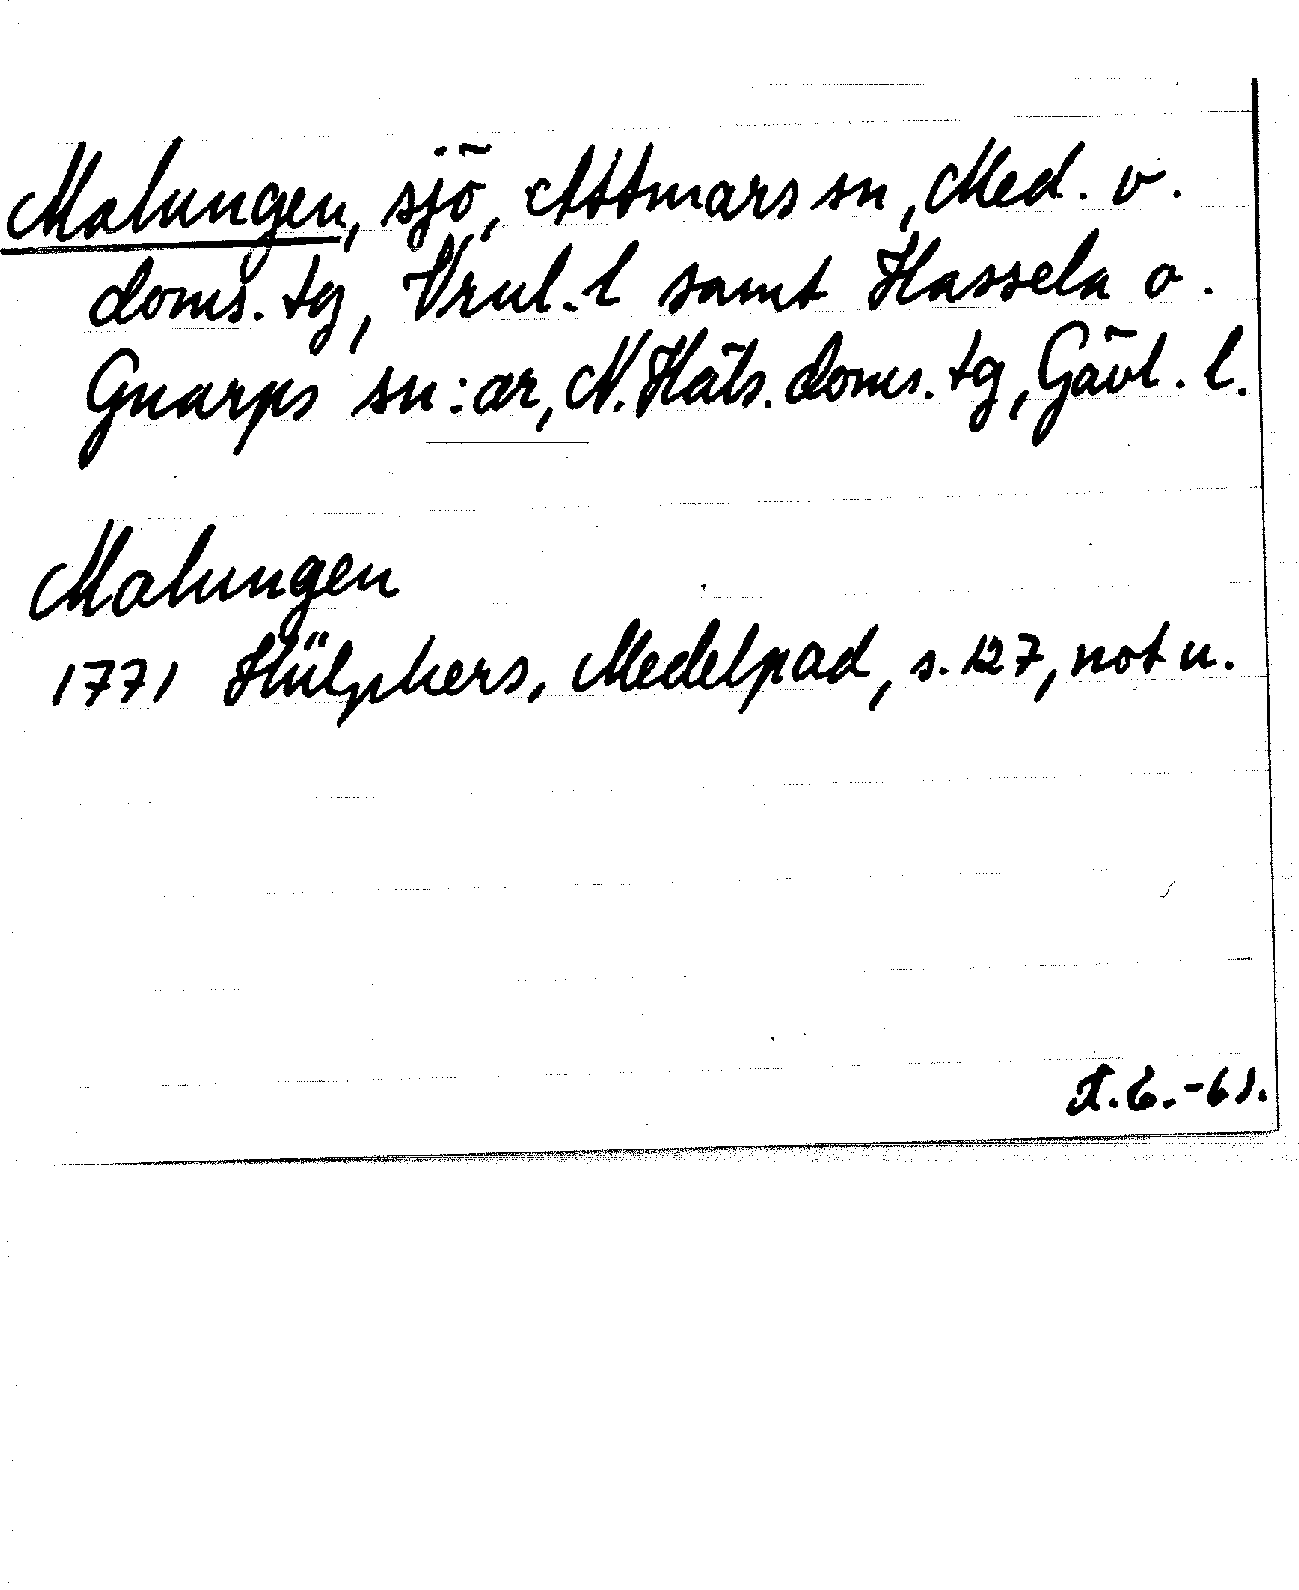 Malungen, sjö, Attmars sn, Med. v.
doms. tg, Vrnl. l samt Hassela o.
Gnarps sn:ar, N. Häls. doms. tg, Gävl. l.
Malungen
1771 Hülphers, Medelpad, s. 127, not u.
-61.